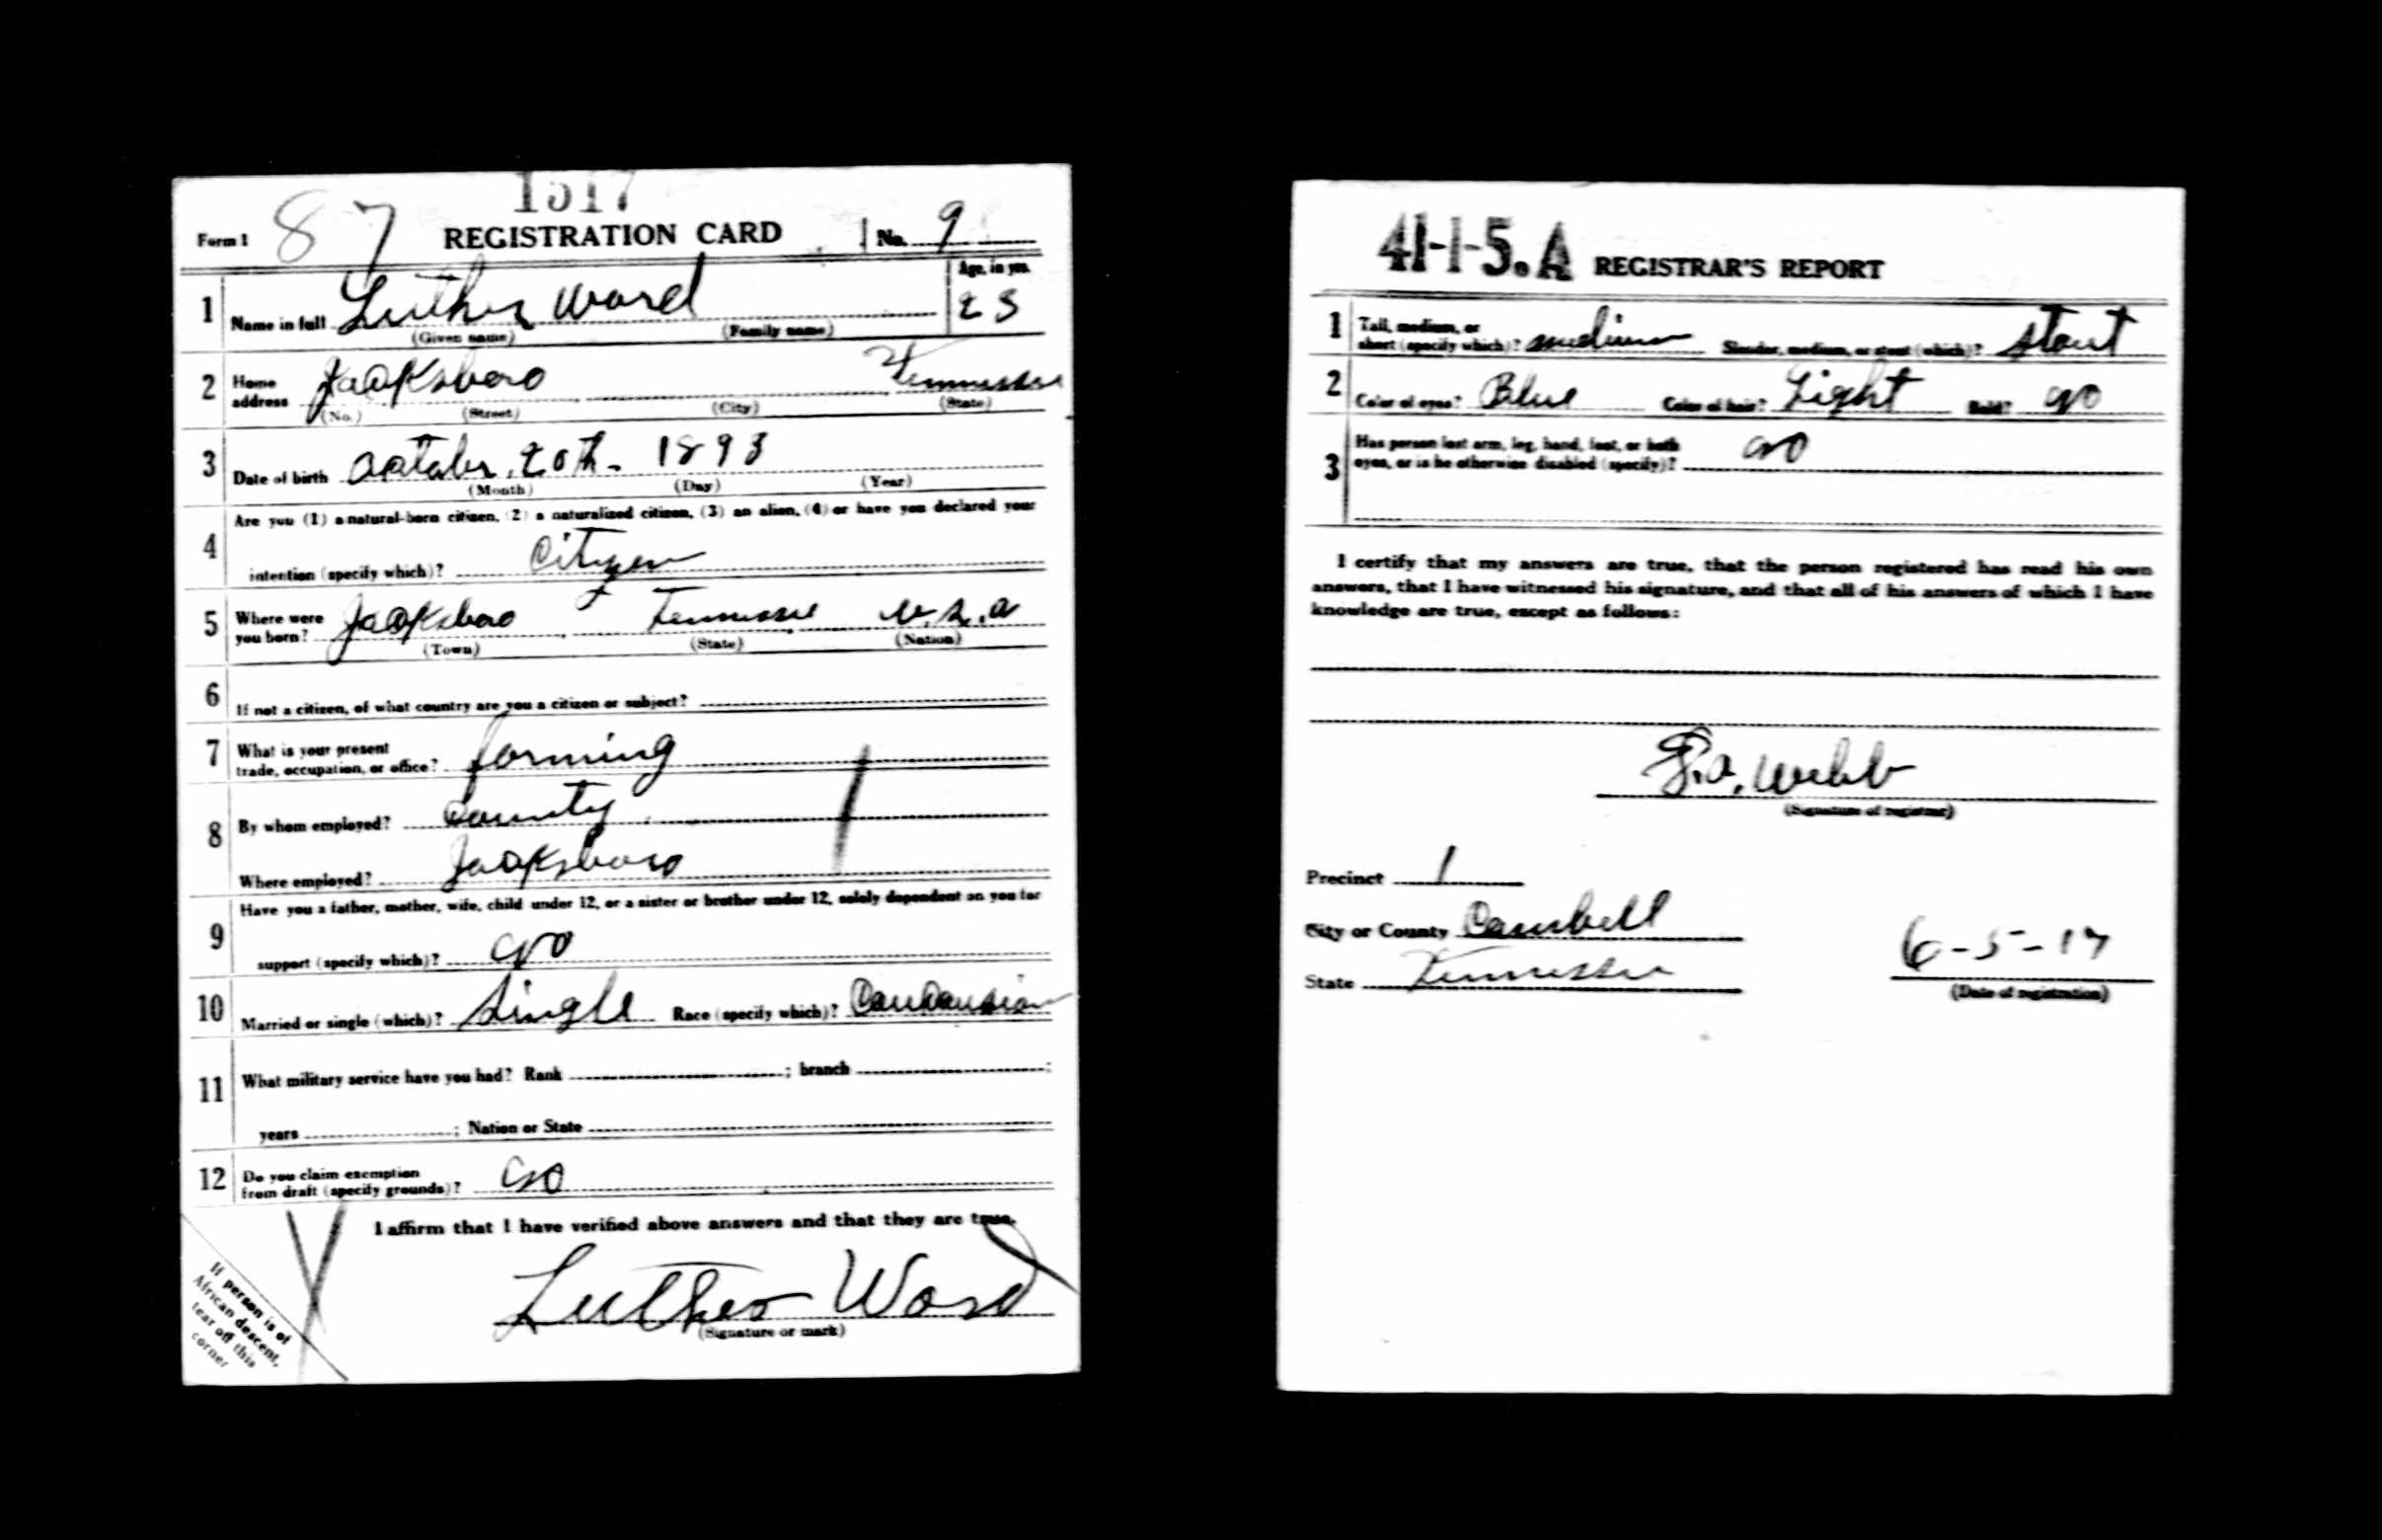 1517
Form 1 87 REGISTRATION CARD No. 9
1 Name in full Luther Ward Age, in yrs. 23
(Given name) (Family name)
2 Home address Jacksboro Tennessee
(No.) (Street) (City) (State)
3 Date of birth October 20th - 1893
(Month) (Day) (Year)
4 Are you (1) a natural-born citizen, (2) a naturalized citizen, (3) an alien, (4) or have you declared your
intention (specify which)? Cityen
5 Where were you born? Jacksboro Tennessee U.S.A
(Town) (State) (Nation)
6 If not a citizen, of what country are you a citizen or subject?
7 What is your present trade, occupation, or office? farming
8 By whom employed? County
Where employed? Jacksboro
9 Have you a father, mother, wife, child under 12, or a sister or brother under 12, solely dependent on you for
support (specify which)? no
10 Married or single (which)? Single Race (specify which)? Caucausian
11 What military service have you had? Rank ; branch ;
years ; Nation or State
12 Do you claim exemption from draft (specify grounds)? no
I affirm that I have verified above answers and that they are true.
Luther Ward
(Signature or mark)
If person is of
African descent,
tear off this
corner
41-1-5. A REGISTRAR'S REPORT
1 Tall, medium, or short (specify which)? medium Slender, medium, or stout (which)? stout
2 Color of eyes? Blue Color of hair? Light Bald? no
3 Has person lost arm, leg, hand, foot, or both eyes, or is he otherwise disabled (specify)? no
I certify that my answers are true, that the person registered has read his own
answers, that I have witnessed his signature, and that all of his answers of which I have
knowledge are true, except as follows:
Webb
(Signature of registrar)
Precinct 1
City or County Cambell
State Tennessee
6-5-17
(Date of registration)